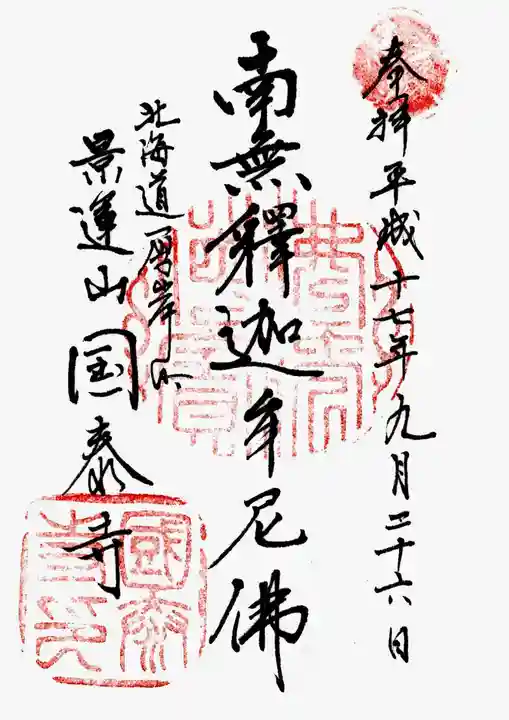 奉拝平成十七年九月二十六日
南無釋迦牟尼佛
北海道厚岸町
景運山国泰寺
國泰